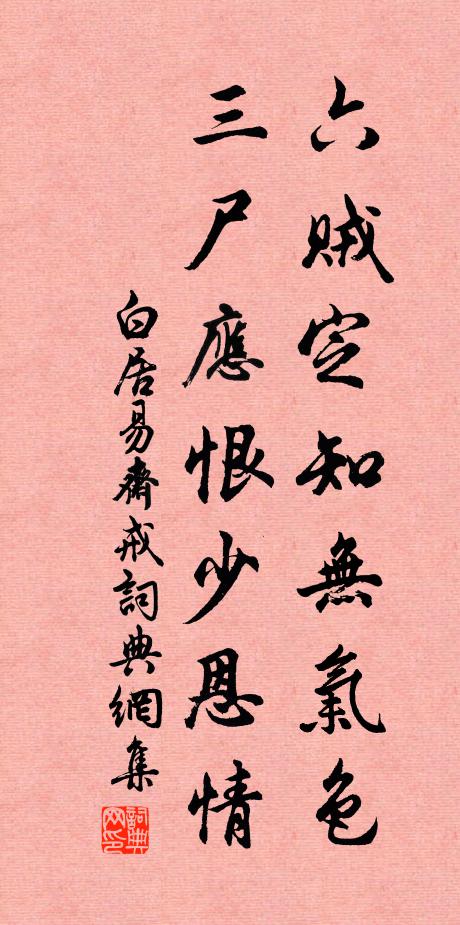 六賊定知無氣色
三尸應恨少恩情
白居易齋戒詞典網集
詞典网印